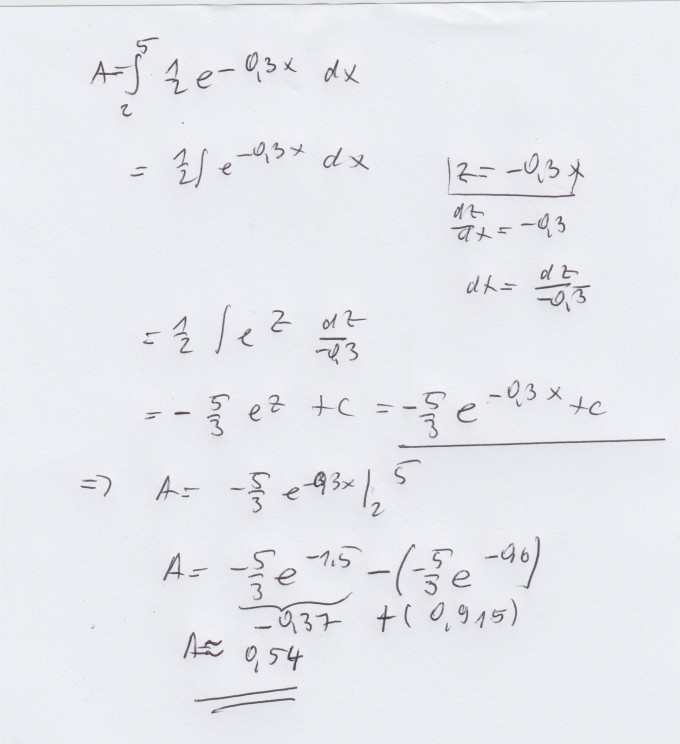 A = ∫₂⁵ ½ e^(-0,3x) dx
= ½ ∫ e^(-0,3x) dx
z = -0,3x
dz/dx = -0,3
dx = dz/-0,3
= ½ ∫ e^z dz/-0,3
= - 5/3 e^z + c = -5/3 e^(-0,3x) + c
=> A = -5/3 e^(-0,3x) |₂⁵
A = -5/3 e^(-1,5) - (-5/3 e^(-0,6))
-0,37 + (0,915)
A ≈ 0,54